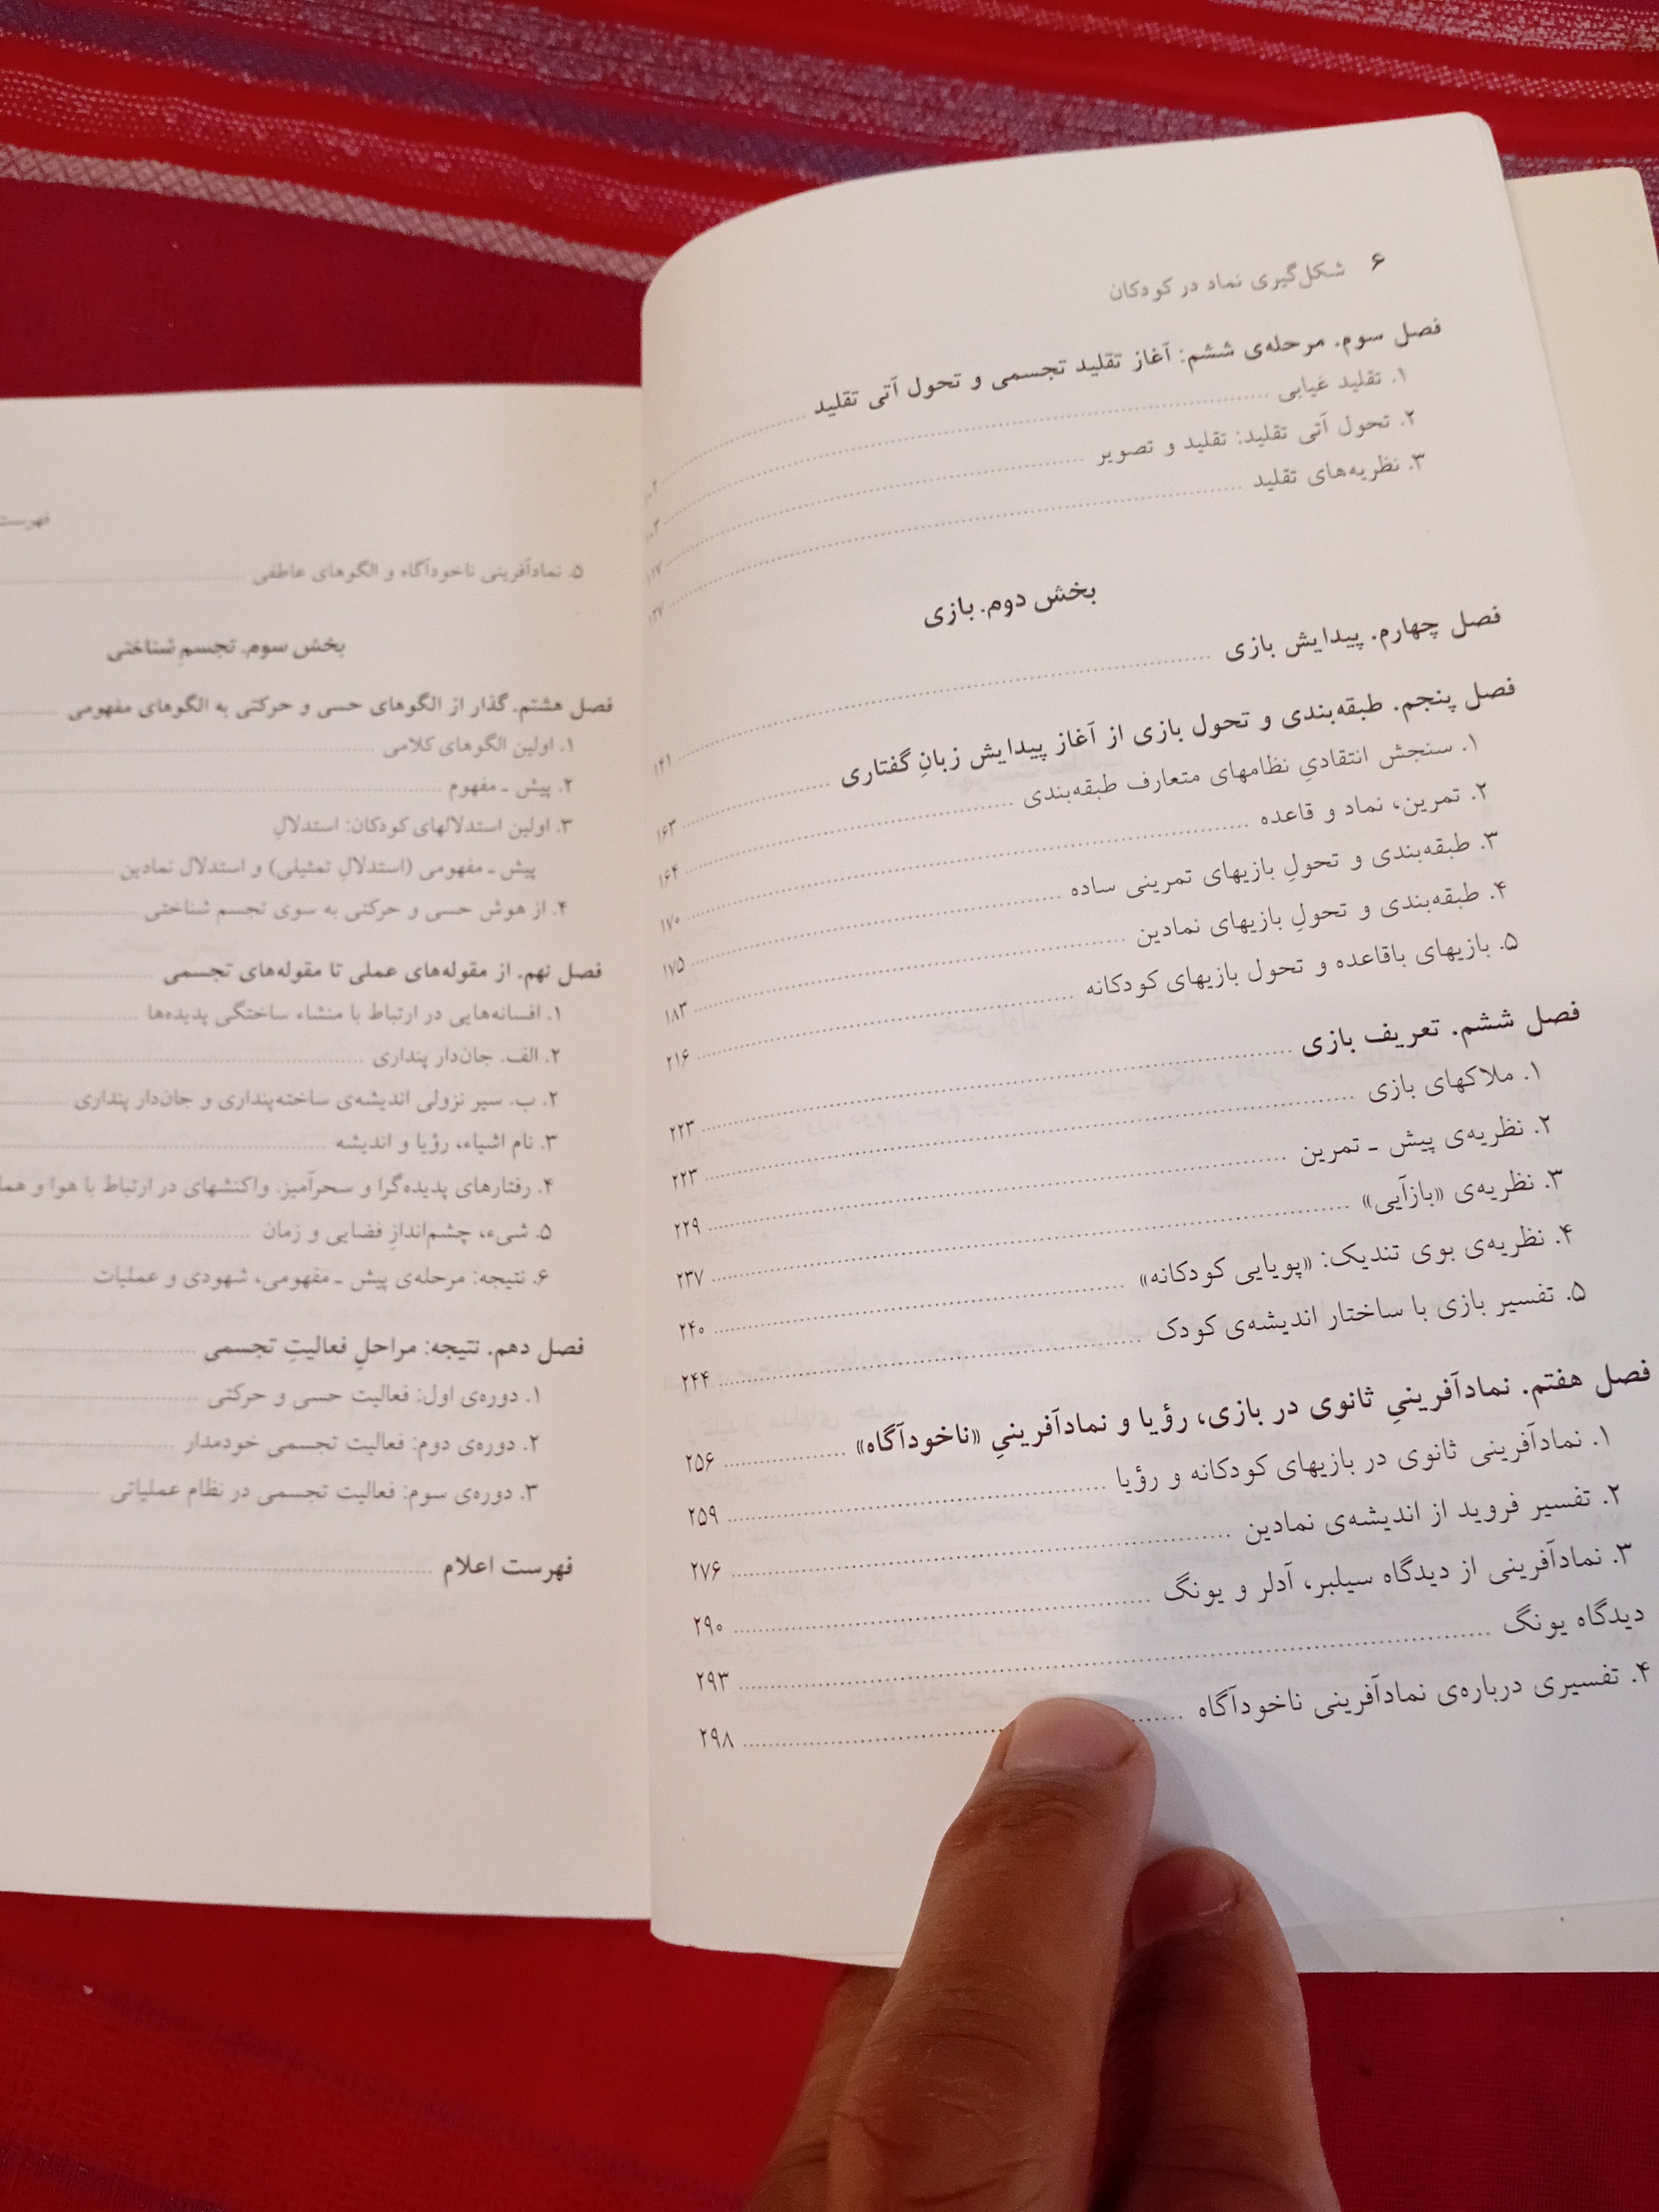 ۶ شکل‌گیری نماد در کودکان
فصل سوم. مرحله‌ی ششم: آغاز تقلید تجسمی و تحول آتی تقلید ۱۰۲
۱. تقلید غیابی ۱۰۳
۲. تحول آتی تقلید: تقلید و تصویر ۱۱۷
۳. نظریه‌های تقلید ۱۲۷
بخش دوم. بازی
فصل چهارم. پیدایش بازی ۱۴۱
فصل پنجم. طبقه‌بندی و تحول بازی از آغاز پیدایش زبانِ گفتاری ۱۶۳
۱. سنجش انتقادیِ نظامهای متعارف طبقه‌بندی ۱۶۴
۲. تمرین، نماد و قاعده ۱۷۰
۳. طبقه‌بندی و تحولِ بازیهای تمرینی ساده ۱۷۵
۴. طبقه‌بندی و تحولِ بازیهای نمادین ۱۸۳
۵. بازیهای باقاعده و تحول بازیهای کودکانه ۲۱۶
فصل ششم. تعریف بازی ۲۲۳
۱. ملاکهای بازی ۲۲۳
۲. نظریه‌ی پیش ـ تمرین ۲۲۹
۳. نظریه‌ی «بازآیی» ۲۳۷
۴. نظریه‌ی بوی تندیک: «پویایی کودکانه» ۲۴۰
۵. تفسیر بازی با ساختار اندیشه‌ی کودک ۲۴۴
فصل هفتم. نمادآفرینیِ ثانوی در بازی، رؤیا و نمادآفرینیِ «ناخودآگاه» ۲۵۶
۱. نمادآفرینی ثانوی در بازیهای کودکانه و رؤیا ۲۵۹
۲. تفسیر فروید از اندیشه‌ی نمادین ۲۷۶
۳. نمادآفرینی از دیدگاه سیلبر، آدلر و یونگ ۲۹۰
دیدگاه یونگ ۲۹۳
۴. تفسیری درباره‌ی نمادآفرینی ناخودآگاه ۲۹۸
فهرست
۵. نمادآفرینی ناخودآگاه و الگوهای عاطفی
بخش سوم. تجسمِ شناختی
فصل هشتم. گذار از الگوهای حسی و حرکتی به الگوهای مفهومی
۱. اولین الگوهای کلامی
۲. پیش ـ مفهوم
۳. اولین استدلالهای کودکان: استدلالِ
پیش ـ مفهومی (استدلالِ تمثیلی) و استدلال نمادین
۴. از هوش حسی و حرکتی به سوی تجسم شناختی
فصل نهم. از مقوله‌های عملی تا مقوله‌های تجسمی
۱. افسانه‌هایی در ارتباط با منشاء ساختگی پدیده‌ها
۲. الف. جان‌دار پنداری
۲. ب. سیر نزولی اندیشه‌ی ساخته‌پنداری و جان‌دار پنداری
۳. نام اشیاء، رؤیا و اندیشه
۴. رفتارهای پدیده‌گرا و سحرآمیز. واکنشهای در ارتباط با هوا و
۵. شیء، چشم‌اندازِ فضایی و زمان
۶. نتیجه: مرحله‌ی پیش ـ مفهومی، شهودی و عملیات
فصل دهم. نتیجه: مراحلِ فعالیتِ تجسمی
۱. دوره‌ی اول: فعالیت حسی و حرکتی
۲. دوره‌ی دوم: فعالیت تجسمی خودمدار
۳. دوره‌ی سوم: فعالیت تجسمی در نظام عملیاتی
فهرست اعلام